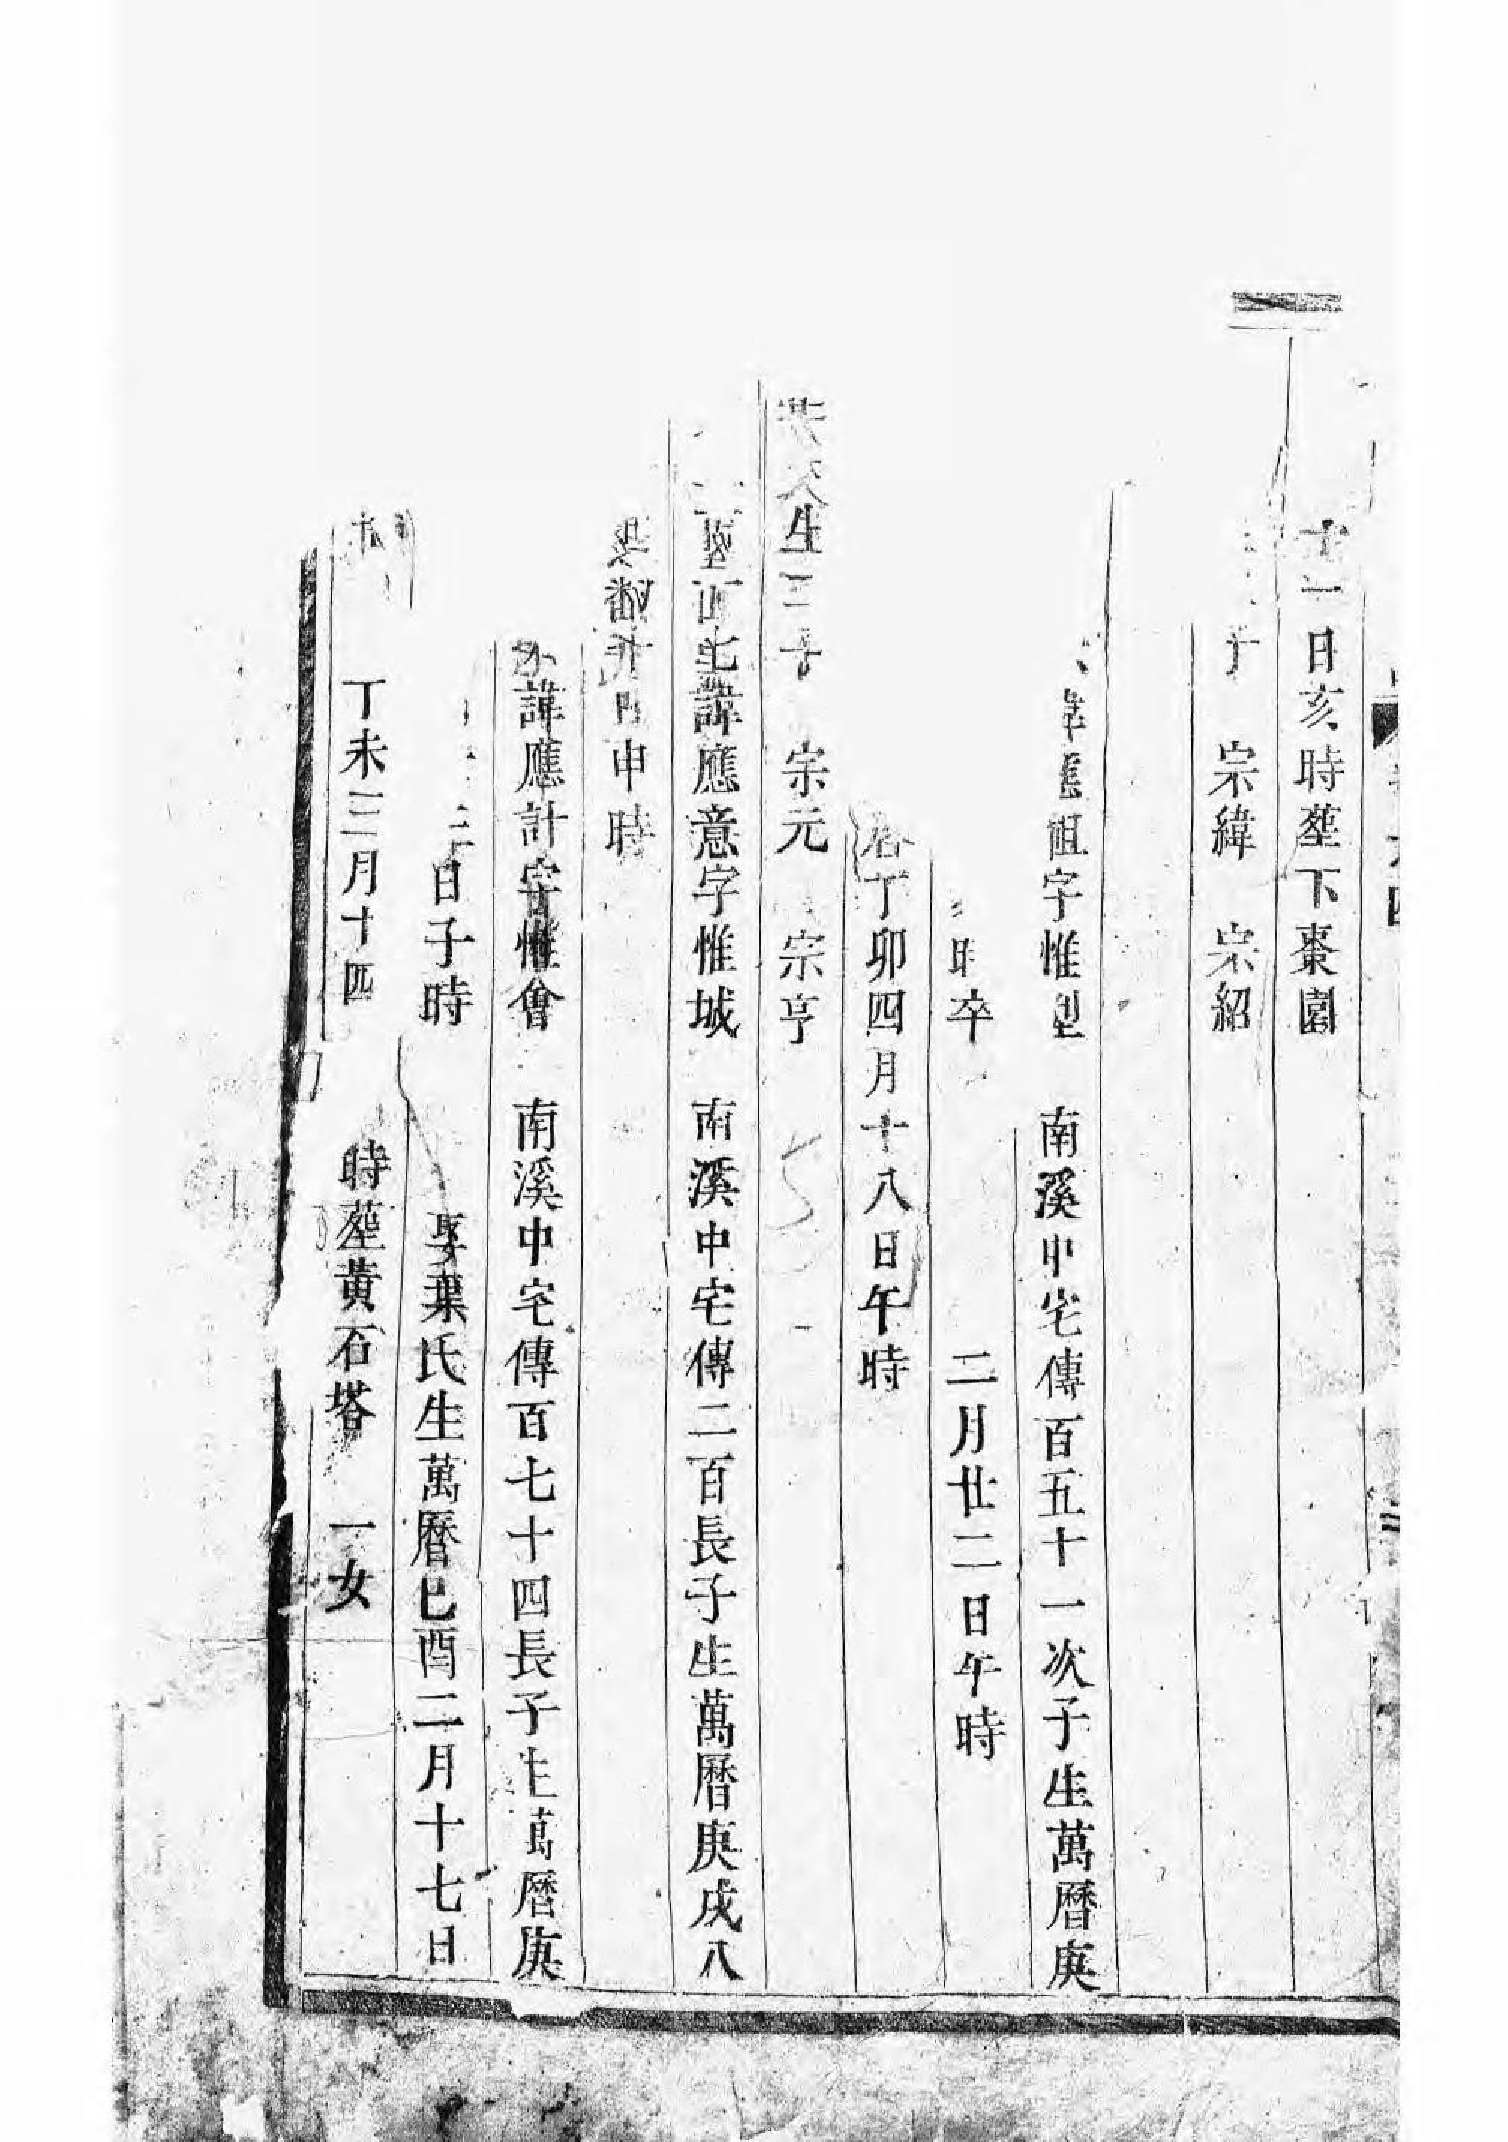 十一日亥時塟下棗園
子 宗緯 宗紹
諱應祖字惟型 南溪中宅傳百五十一次子生萬曆庚
時卒 二月廿二日午時
丁卯四月十八日午時
生二子 宗元 宗亨
諱應意字惟城 南溪中宅傳二百長子生萬曆庚戌八
日申時
諱應計字惟會 南溪中宅傳百七十四長子生萬曆庚
日子時 娶葉氏生萬曆巳酉二月十七日
丁未三月十四 時塟黃石塔 一女